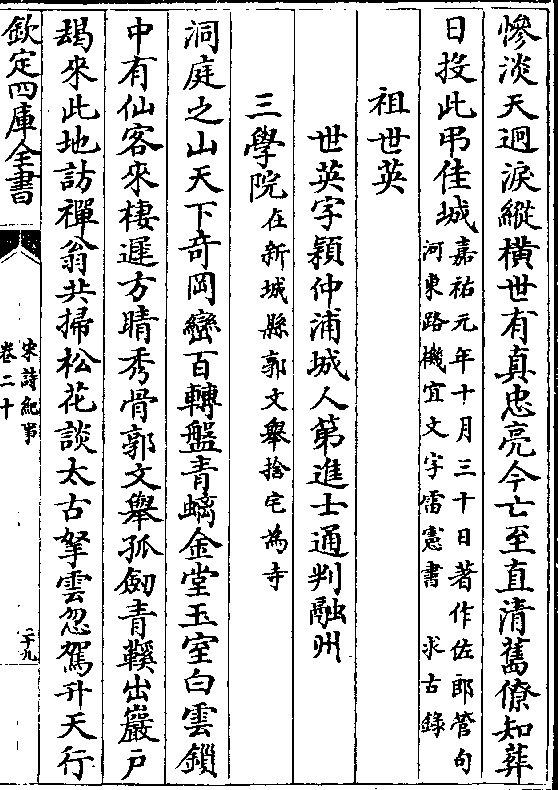 慘淡天迥淚縱橫世有真忠亮今亡至直清舊僚知葬
日投此弔佳城嘉祐元年十月三十日著作佐郎管句
河東路機宜文字雷憲書　求古錄
祖世英
世英字穎仲浦城人第進士通判融州
三學院在新城縣郭文舉捨宅為寺
洞庭之山天下奇岡巒百轉盤青螭金堂玉室白雲鎖
中有仙客來棲遲方晴秀骨郭文舉孤劒青鞵出巖戶
朅來此地訪禪翁共掃松花談太古拏雲忽駕升天行
欽定四庫全書
宋詩紀事
卷二十
二十九